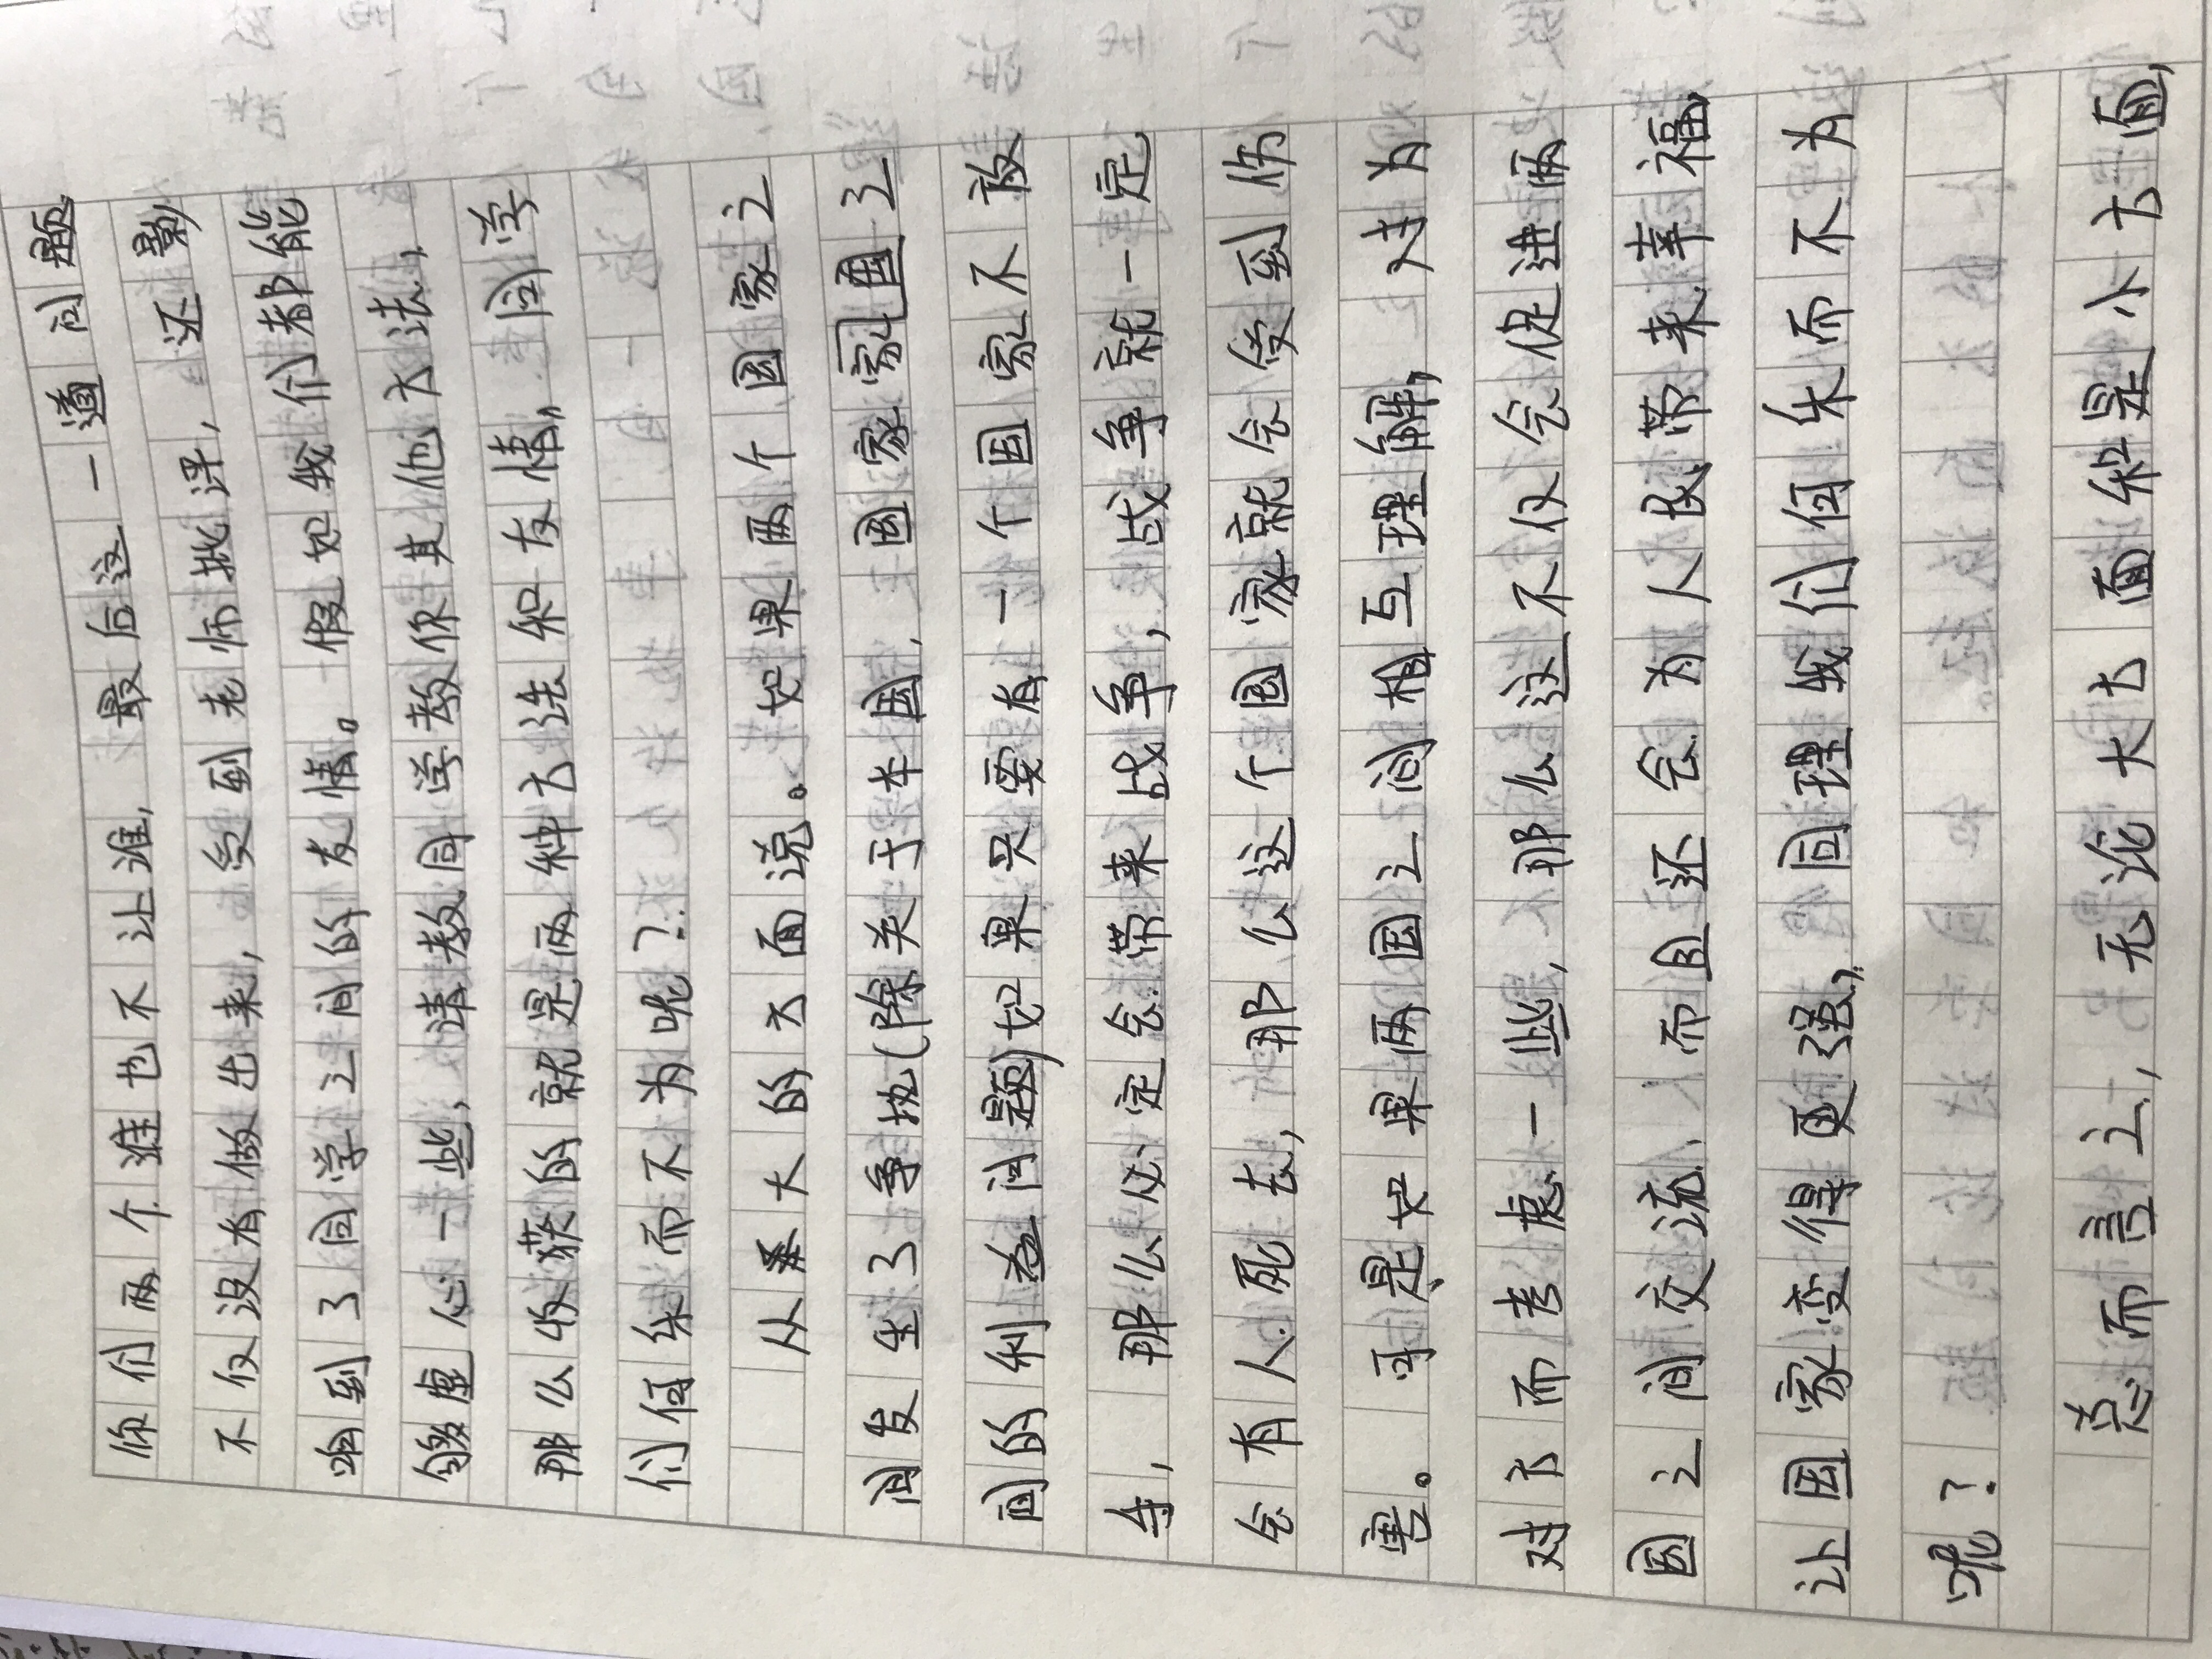 你们两个谁也不让谁,最后这一道问题
不仅没有做出来,受到老师批评,还影
响到了同学之间的友情。假如我们都能
够虚心一些,请教同学教你其他方法,
那么收获的就是两种方法和友情,同学
们何乐而不为呢?
从大的方面说。如果两个国家之
间发生了争执(除关于本国、国家家国之
间的利益问题)如果只要有一个国家不放
弃,那么必定会带来战争,战争就一定
会有人死去,那么这个国家就会受到伤
害。可是如果两国之间相互理解,对为
对方而考虑一些,那么这不仅会促进两
国之间交流、而且还会为人民带来幸福,
让国家变得更强,同理我们何乐而不为
呢?
总而言之,无论大方面和是小方面,